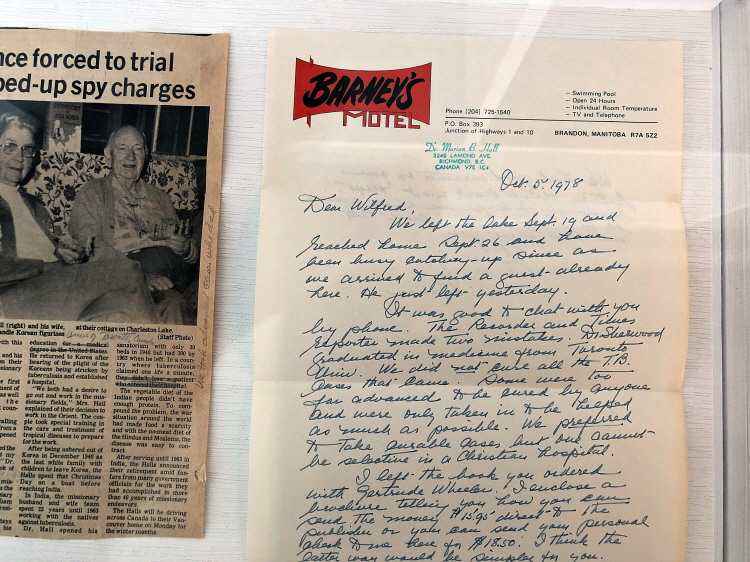 nce forced to trial
ped-up spy charges
l (right) and his wife, at their cottage on Charleston Lake.
andle Korean figurines (Staff Photo)
education for a medical
degree in the United States.
He returned to Korea after
hearing of the plight of the
Koreans being struck by
tuberculosis and established
a hospital.
"We both had a desire to
go out and work in the mis-
sionary fields," Mrs. Hall
explained of their decision to
work in the Orient. The cou-
ple took special training in
the care and treatment of
tropical diseases to prepare
for the work.
After being ushered out of
Korea in December 1940 as
the last while family with
children to leave Korea, the
Halls spent that Christmas
Day on a boat before
reaching India.
In India, the missionary
husband and wife team
spent 23 years until 1963
working with the natives
against tuberculosis.
Dr. Hall opened his
sanatorium with only 30
beds in 1940 but had 380 by
1963 when he left. In a coun-
try where tuberculosis
claimed one life a minute,
they didn't lose a patient
who entered the hospital.
The vegetable diet of the
Indian people didn't have
enough protein. To com-
pound the problem, the war
situation around the world
had made food a scarcity
and with the no-meat diet of
the Hindus and Moslems, the
disease was easy to con-
tract.
After serving until 1963 in
India, the Halls announced
their retirement amid fan-
fare from many government
officials for the work they
had accomplished in more
than 40 years of missionary
endevors.
The Halls will be driving
across Canada to their Van-
couver home on Monday for
the winter months.
BARNEY'S
MOTEL
Phone (204) 725-1540
P.O. Box 393
Junction of Highways 1 and 10
– Swimming Pool
– Open 24 Hours
– Individual Room Temperature
– TV and Telephone
BRANDON, MANITOBA R7A 5Z2
Dr. Marian B. Hall
3240 LAMOND AVE.
RICHMOND, B.C.
CANADA V7E 1C4
Oct. 5, 1978
Dear Wilfred,
We left the lake Sept. 19 and
reached home Sept. 26 and have
been busy catching-up since as
we arrived to find a guest already
here. He just left yesterday.
It was good to chat with you
by phone. The Recorder and Times
reporter made two mistakes. Dr Sherwood
graduated in medicine from Toronto
Univ. We did not cure all the T.B.
cases that came. Some were too
far advanced to be cured by anyone
and were only taken in to be helped
as much as possible. We preferred
to take curable cases but one cannot
be selective in a Christian hospital.
I left the book you ordered
with Gertrude Wheeler. I enclose a
brochure telling you how you can
send the money $15.95 direct to the
publisher or you can send your personal
check to me here for $18.50. I think the
latter way would be simpler for you.